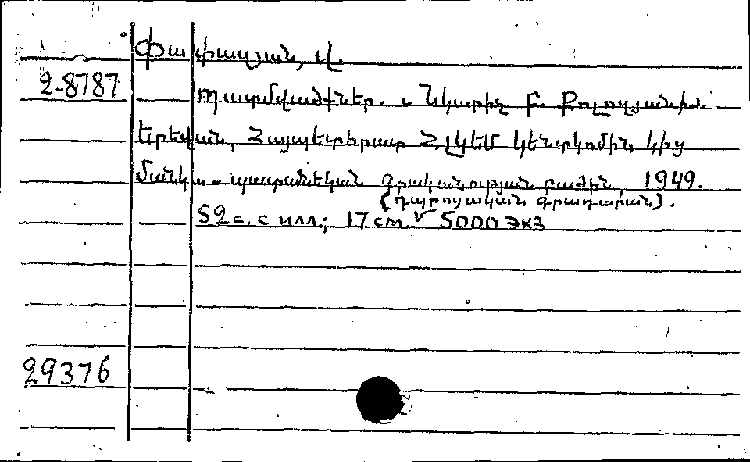 Փափազյան, Վ.
2-8787
Պատմվածքներ. Նկարիչ Բ. Քոլոզյանին
Երևան, Հայպետհրատ ՀԼԿԵՄ կենտկոմին կից
մանկ.-պատանեկան գրականության բաժին, 1949.
(դպրոցական գրադարան).
52 с. с илл.; 17 cm. 5000 экз
29376